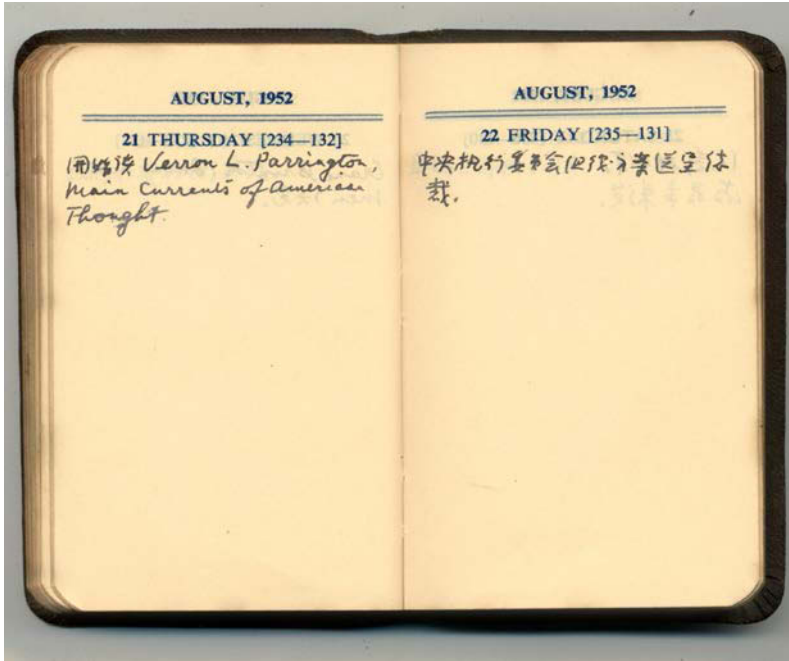 AUGUST, 1952
21 THURSDAY [234—132]
開始读 Verron L. Parrington,
Main Currents of American
Thought.
AUGUST, 1952
22 FRIDAY [235—131]
中央执行委员会方案送呈总
裁.